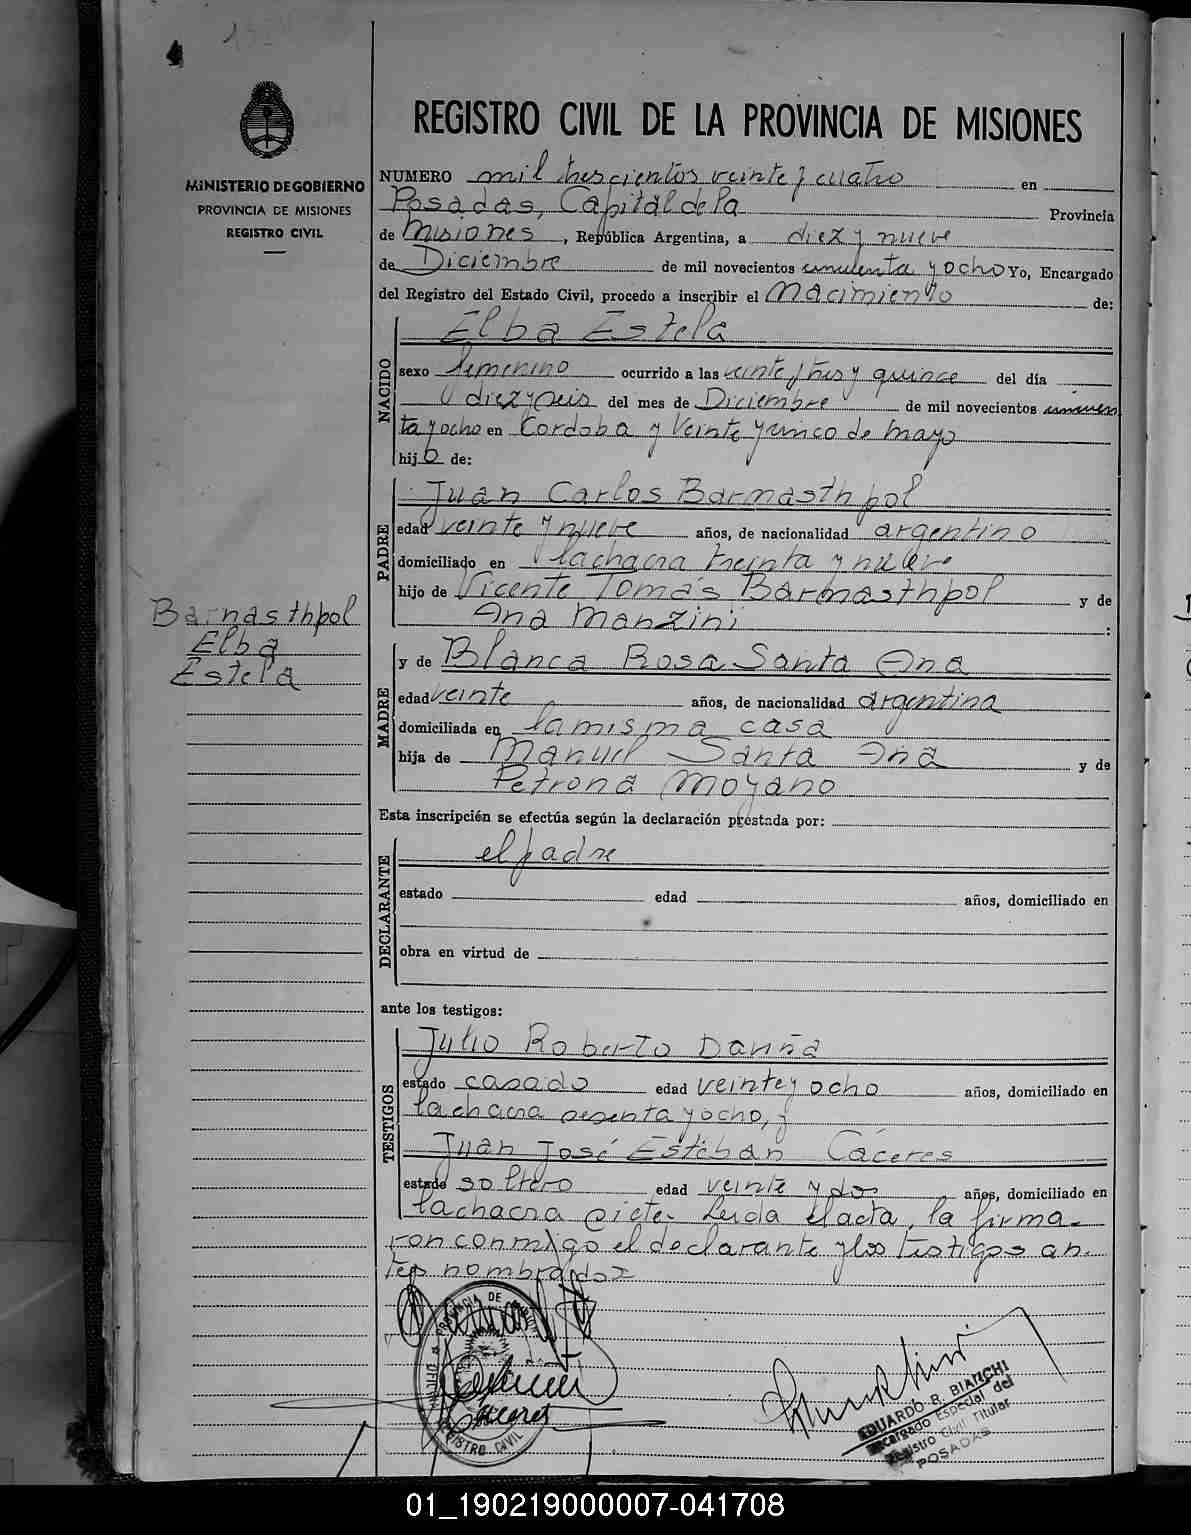 4
MINISTERIO DE GOBIERNO
PROVINCIA DE MISIONES
REGISTRO CIVIL
Barnasthpol
Elba
Estela
REGISTRO CIVIL DE LA PROVINCIA DE MISIONES
NUMERO mil trescientos veinte y cuatro en
Posadas, Capital de la Provincia
de Misiones, República Argentina, a diez y nueve
de Diciembre de mil novecientos cincuenta y ocho Yo, Encargado
del Registro del Estado Civil, procedo a inscribir el Nacimiento de:
NACIDO
Elba Estela
sexo femenino ocurrido a las veinte y tres y quince del día
diez y seis del mes de Diciembre de mil novecientos cincuen
ta y ocho en Cordoba y Veinte y cinco de Mayo
hijo de:
PADRE
Juan Carlos Barnasthpol
edad veinte y nueve años, de nacionalidad argentino
domiciliado en la chacra treinta y nueve
hijo de Vicente Tomás Barnasthpol y de
Ana Manzini :
MADRE
y de Blanca Rosa Santa Ana
edad veinte años, de nacionalidad argentina
domiciliada en la misma casa
hija de Manuel Santa Ana y de
Petrona Moyano
Esta inscripción se efectúa según la declaración prestada por:
DECLARANTE
el padre
estado edad años, domiciliado en
obra en virtud de
ante los testigos:
TESTIGOS
Julio Roberto Dauña
estado casado edad veinte y ocho años, domiciliado en
la chacra sesenta y ocho, y
Juan José Esteban Cáceres
estado soltero edad veinte y dos años, domiciliado en
la chacra siete. Leida el acta, la firma-
ron conmigo el declarante y los testigos an-
tes nombrados
PROVINCIA DE
REGISTRO CIVIL
Caceres
EDUARDO R. BIANCHI
Encargado Especial del
Registro Civil Titular
POSADAS
01_190219000007-041708